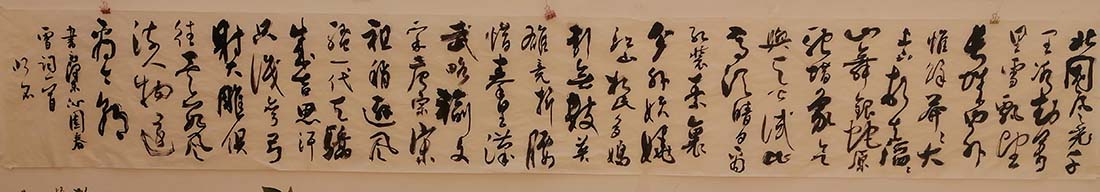 北国风光千
里冰封万
里雪飘望
长城内外
惟馀莽莽大
河上下顿失滔滔
山舞银蛇原
驰蜡象欲
与天公试比
高须晴日看
红装素裹
分外妖娆
江山如此多娇
引无数英
雄竞折腰
惜秦皇汉
武略输文
字唐宗宋
祖稍逊风
骚一代天骄
成吉思汗
只识弯弓
射大雕俱
往矣数风
流人物还
看今朝
沁园春
雪词一首